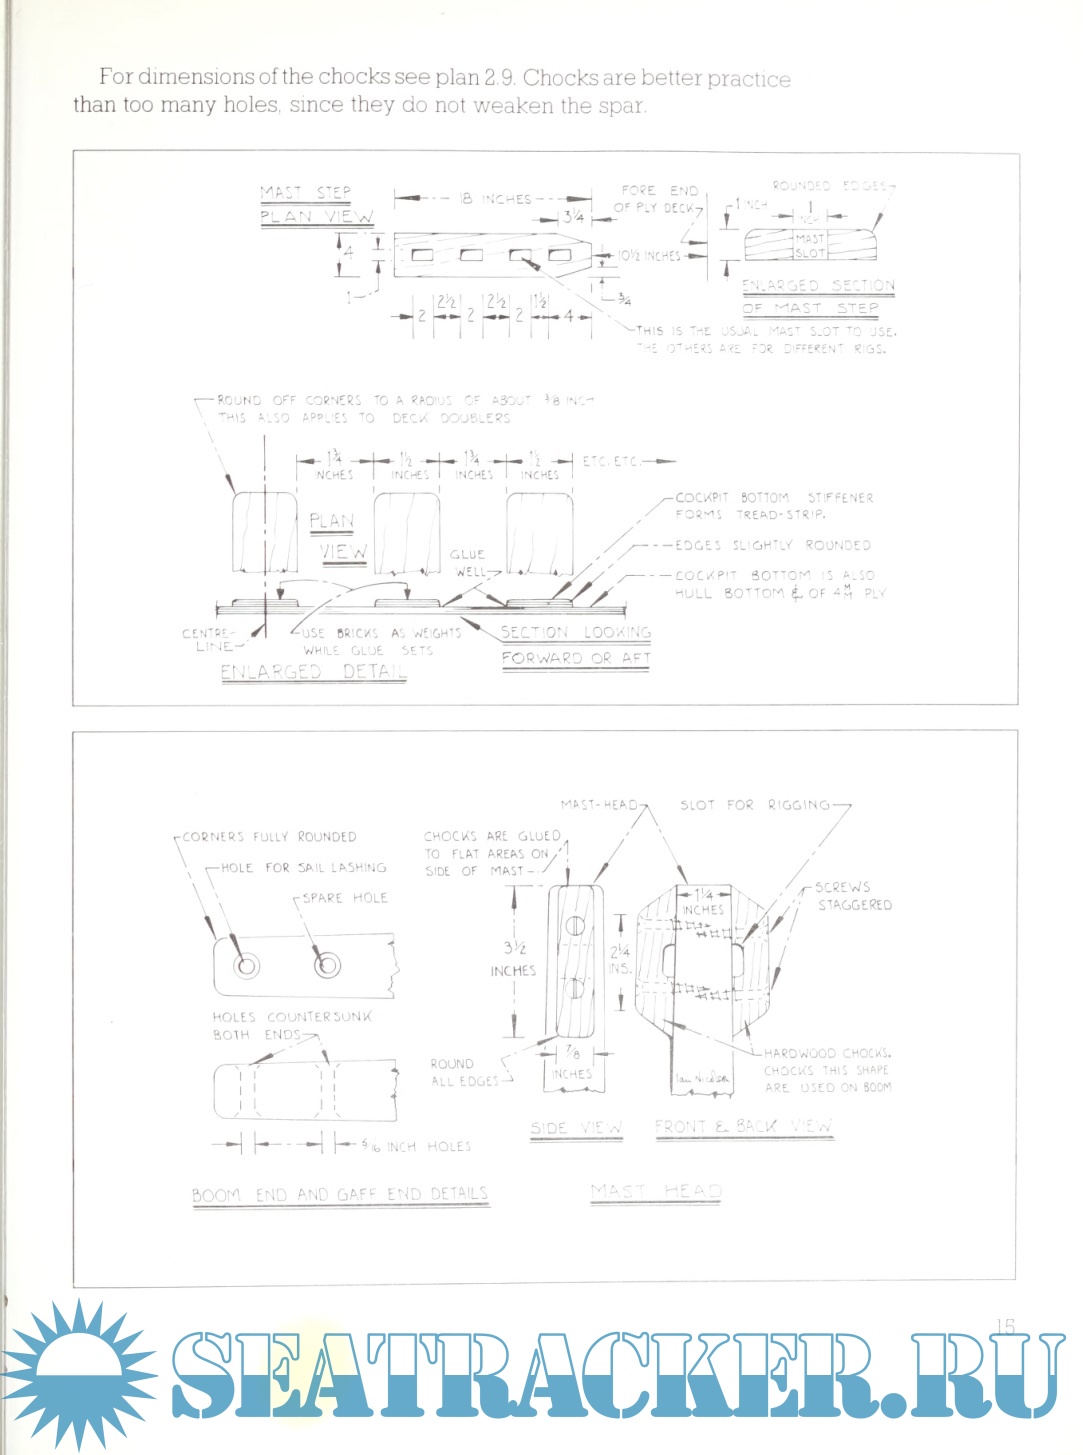 For dimensions of the chocks see plan 2.9. Chocks are better practice
than too many holes, since they do not weaken the spar.
MAST STEP
PLAN VIEW
18 INCHES
3¼
4
1
2½
2½
1½
2
2
2
4
10½ INCHES
¾
FORE END
OF PLY DECK
ROUNDED EDGES
1 INCH
1
INCH
MAST
SLOT
ENLARGED SECTION
OF MAST STEP
THIS IS THE USUAL MAST SLOT TO USE.
THE OTHERS ARE FOR DIFFERENT RIGS.
ROUND OFF CORNERS TO A RADIUS OF ABOUT 3/8 INCH
THIS ALSO APPLIES TO DECK DOUBLERS
1¾
INCHES
1½
INCHES
1¾
INCHES
1½
INCHES
ETC. ETC.
PLAN
VIEW
GLUE
WELL
COCKPIT BOTTOM STIFFENER
FORMS TREAD-STRIP.
EDGES SLIGHTLY ROUNDED
COCKPIT BOTTOM IS ALSO
HULL BOTTOM & OF 4MM PLY
CENTRE-
LINE
USE BRICKS AS WEIGHTS
WHILE GLUE SETS
SECTION LOOKING
FORWARD OR AFT
ENLARGED DETAIL
MAST-HEAD
SLOT FOR RIGGING
CORNERS FULLY ROUNDED
HOLE FOR SAIL LASHING
SPARE HOLE
CHOCKS ARE GLUED
TO FLAT AREAS ON
SIDE OF MAST
SCREWS
STAGGERED
1¼
INCHES
3½
INCHES
2¼
INS.
HOLES COUNTERSUNK
BOTH ENDS
ROUND
ALL EDGES
7/8
INCHES
Ian Nicolson
HARDWOOD CHOCKS.
CHOCKS THIS SHAPE
ARE USED ON BOOM
SIDE VIEW
FRONT & BACK VIEW
5/16 INCH HOLES
BOOM END AND GAFF END DETAILS
MAST HEAD
15
SEATRACKER.RU